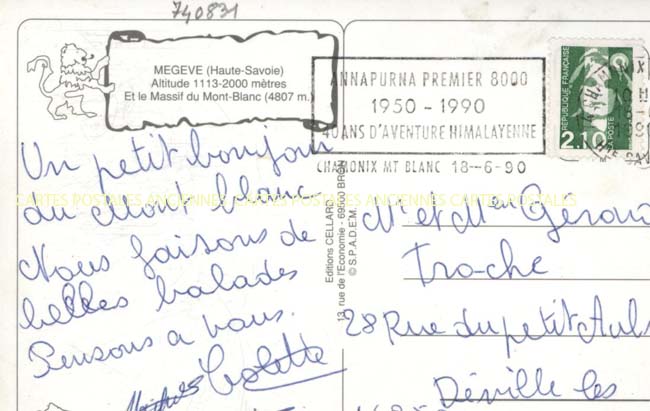 740831
MEGEVE (Haute-Savoie)
Altitude 1113-2000 mètres
Et le Massif du Mont-Blanc (4807 m.)
ANNAPURNA PREMIER 8000
1950 - 1990
40 ANS D'AVENTURE HIMALAYENNE
CHAMONIX MT BLANC 18-6-90
REPUBLIQUE FRANÇAISE
2.10
LA POSTE
Un petit bonjour
du Mont blanc.
Nous faisons de
belles balades
Pensons a vous.
Colette
CARTES POSTALES ANCIENNES CARTES POSTALES ANCIENNES CARTES POSTALES
Editions CELLARD
13, rue de l'Economie - 69500 BRON
© S.P.A.D.E.M.
Mr et Mme Gérard
Troche
28 Rue du petit
Déville les